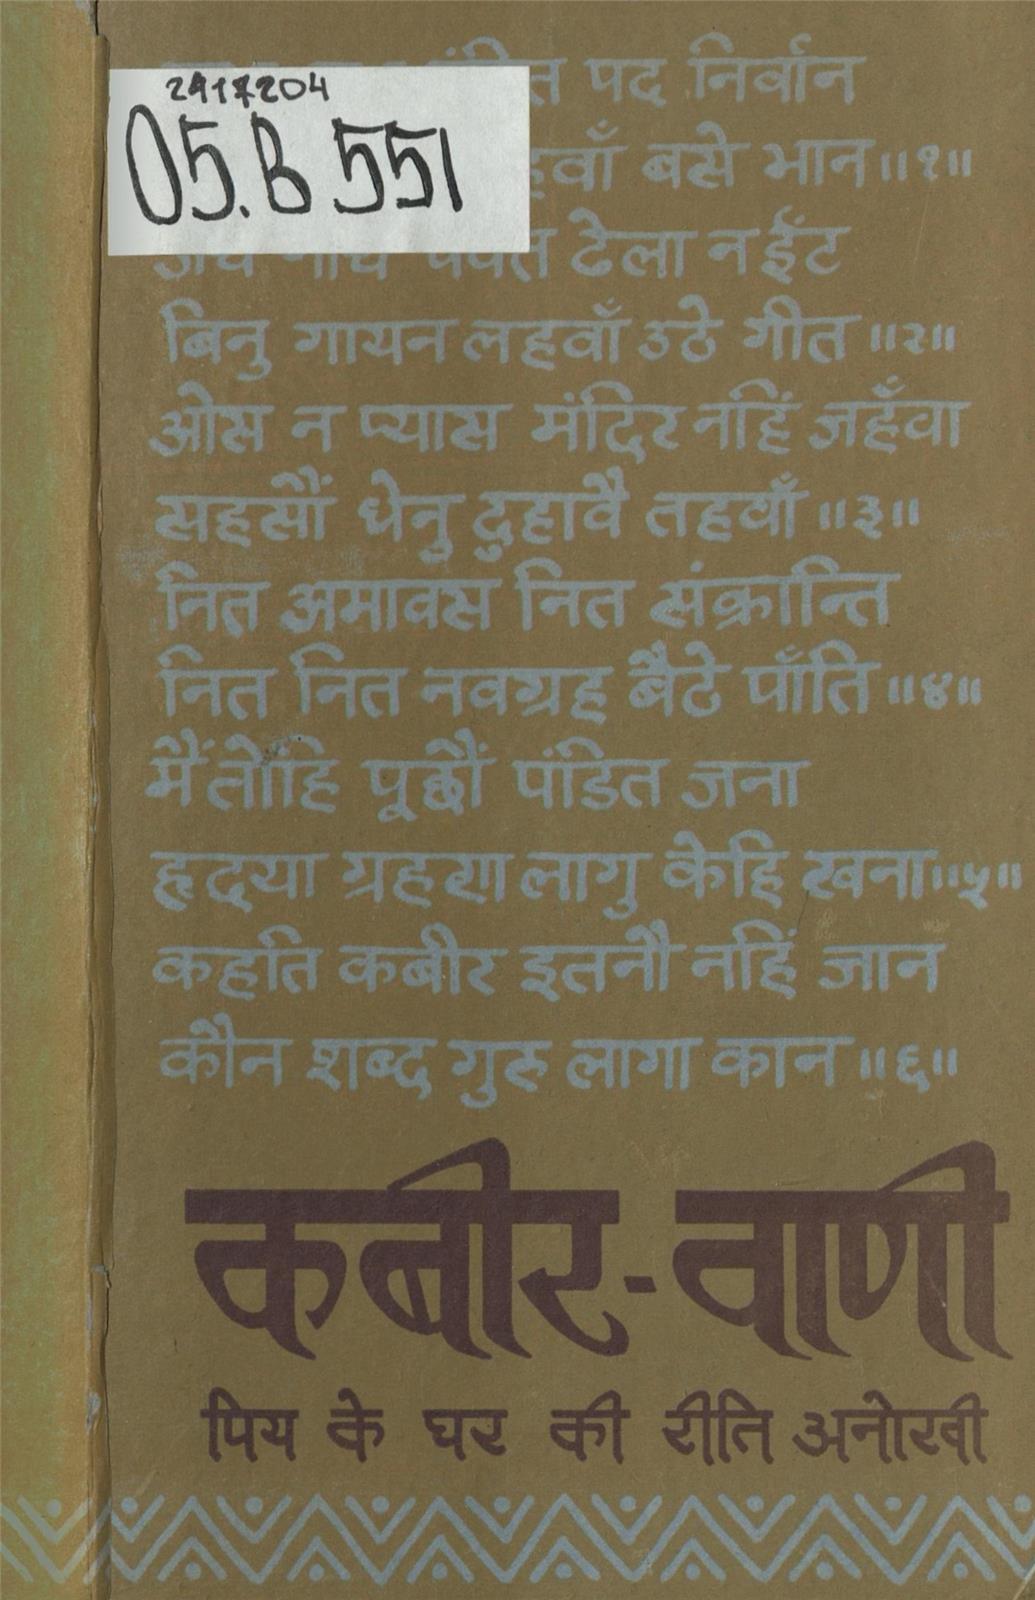 2917204
05.B 551
पद निर्वान
बसे भान ॥१॥
ढेला न ईंट
बिनु गायन लहवाँ उठे गीत ॥२॥
ओस न प्यास मंदिर नहिं जहँवा
सहसौं धेनु दुहावै तहवाँ ॥३॥
नित अमावस नित संक्रान्ति
नित नित नवग्रह बैठे पाँति ॥४॥
मैं तोहि पूछौं पंडित जना
हृदया ग्रहण लागु केहि खना ॥५॥
कहति कबीर इतनौ नहिं जान
कौन शब्द गुरु लागा कान ॥६॥
कबीर-वाणी
पिय के घर की रीति अनोखी